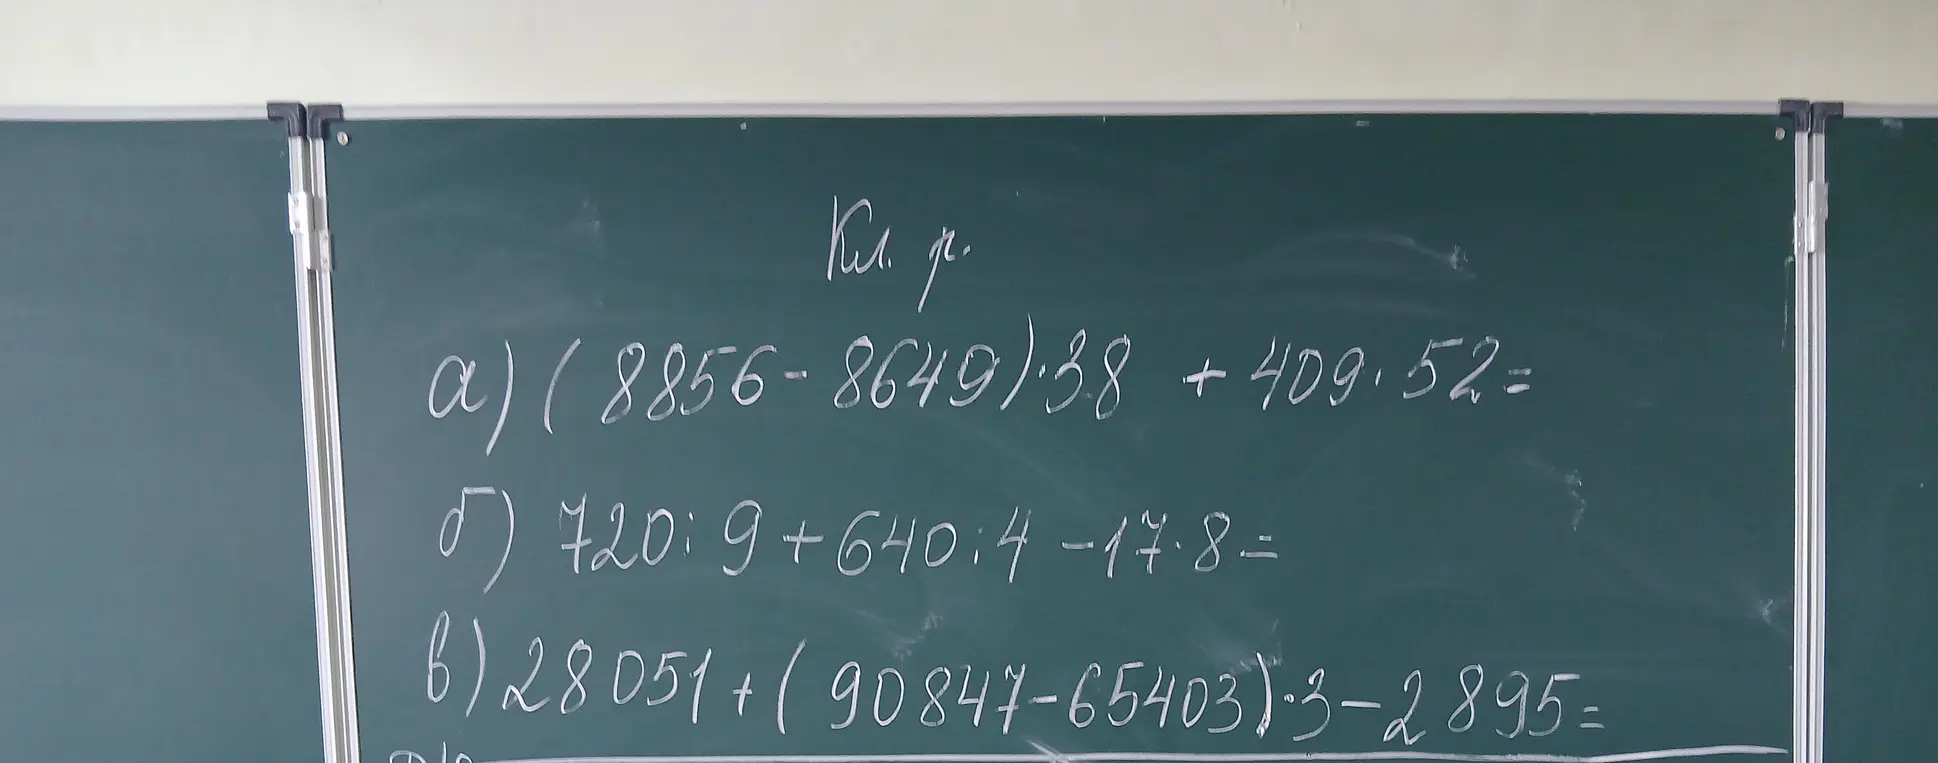 Кл. р.
а) (8856-8649)·38 + 409·52=
б) 720:9+640:4-17·8=
в) 28051+(90847-65403)·3-2895=